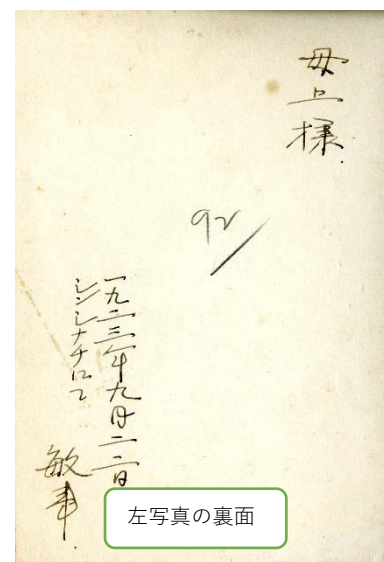 母上様
92/
一九二三年九月二二日
シンシナチにて
敏事
左写真の裏面